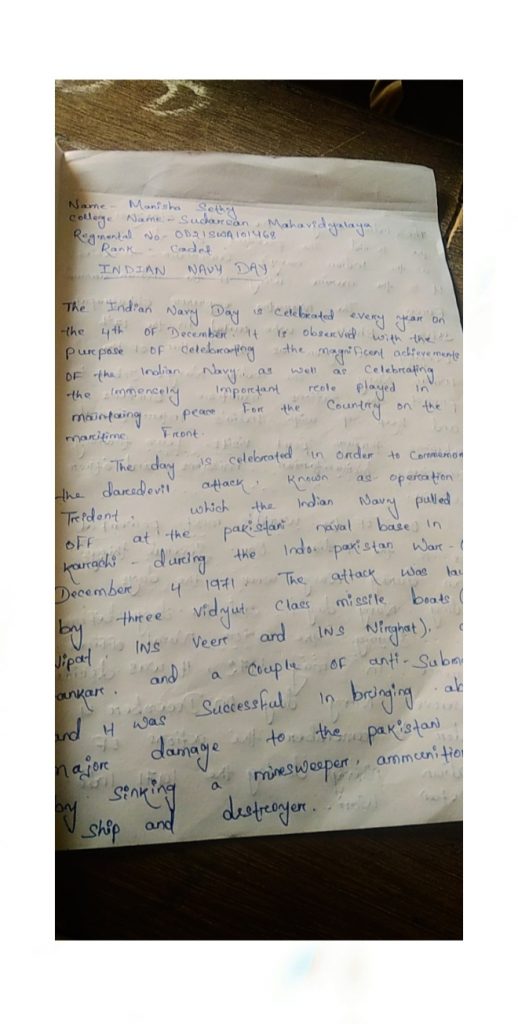 Name - Manisha Sethy
College Name - Sudarsan Mahavidyalaya
Regmental No - OD21SWA101468
Rank - Cadet
INDIAN NAVY DAY
The Indian Navy Day is celebrated every year on
the 4th of December. It is observed with the
purpose of celebrating the magnificent achievements
of the Indian Navy, as well as celebrating
the immensely important role played in
maintaing peace for the country on the
maritime front.
The day is celebrated in order to Commemor
the daredevil attack. known as operation
Trident. which the Indian Navy pulled
off at the pakistani naval base in
karrachi - during the Indo pakistan War - (
December 4 1971 The attack was lau
by three vidyut class missile boats (
Nipat INS Veer and INS Nirghat).
ankar. and a couple of anti - Subm
and it was Successful in bringing ab
major damage to the pakistan
by sinking a minesweeper, ammunitio
ship and destroyer.